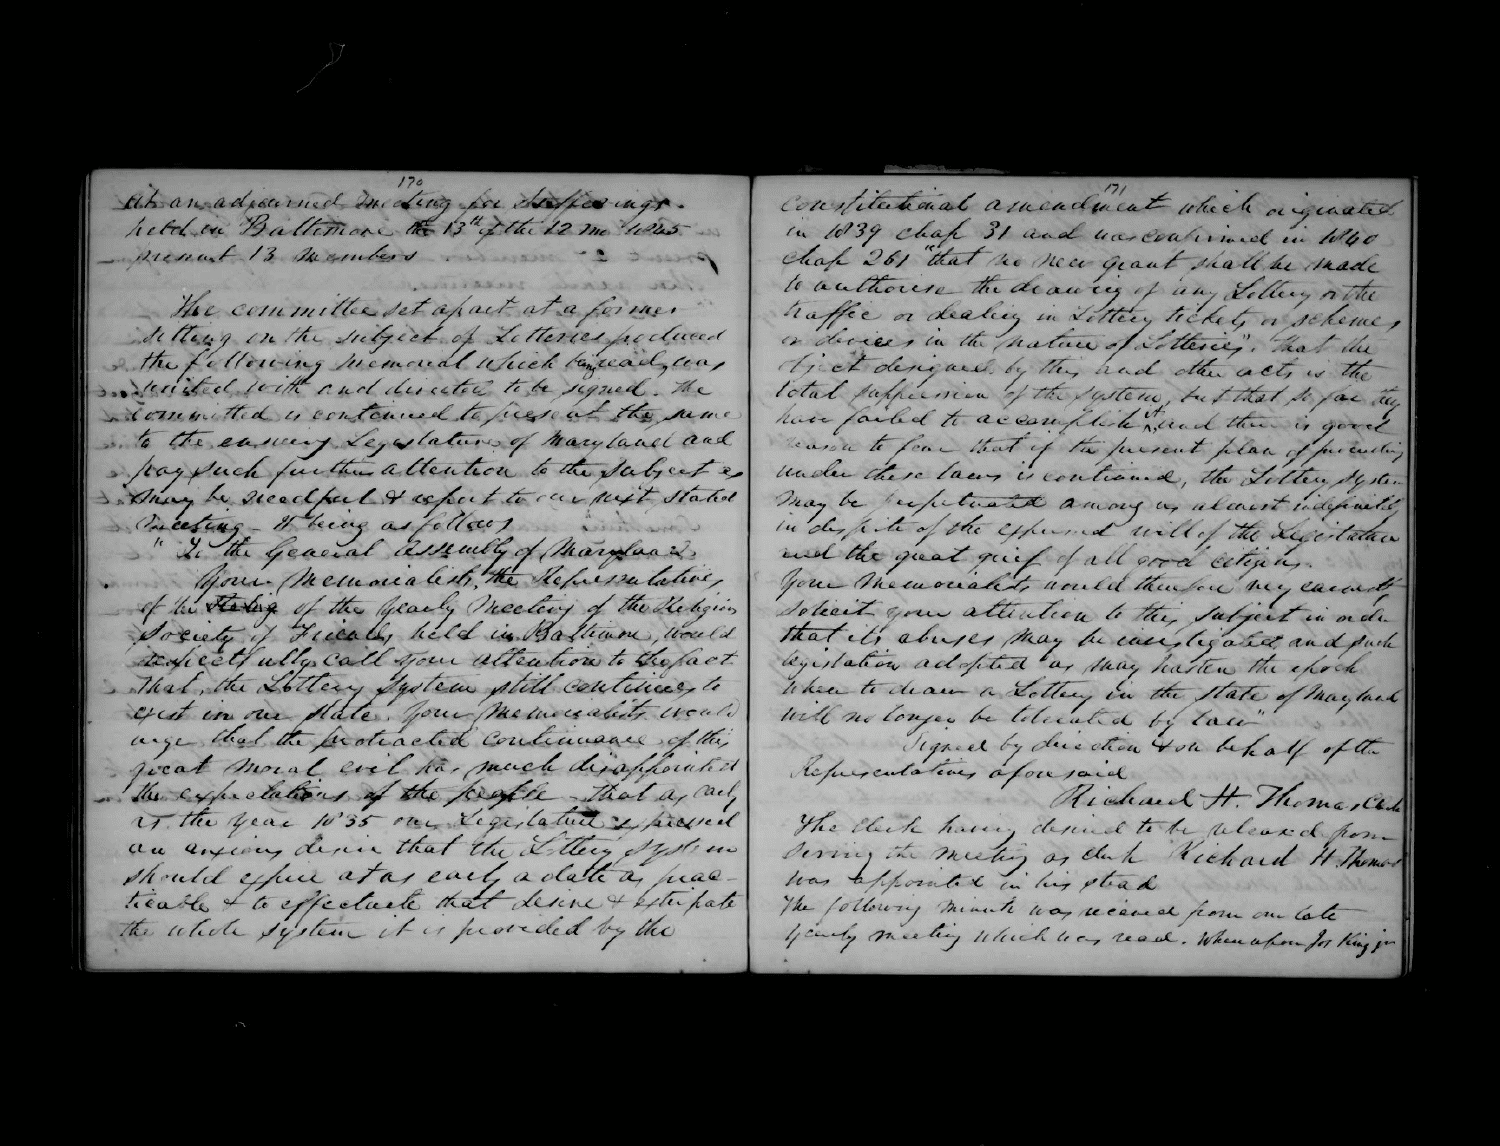 170
At an adjourned meeting for sufferings
held in Baltimore the 13th of the 12 mo 1845
present 13 members
The committee set apart at a former
sitting on the subject of Lotteries produced
the following memorial which being read, was
united with and directed to be signed. The
committee is continued to present the same
to the ensuing Legislature of Maryland and
pay such further attention to the subject as
may be needful & report to our next stated
meeting - It being as follows
" To the General Assembly of Maryland.
Your Memorialists, the Representatives
of the of the Yearly Meeting of the Religious
Society of Friends, held in Baltimore, would
respectfully call your attention to the fact
that, the Lottery System still continues to
exist in our State. Your Memorialists would
urge that the protracted continuance of this
great moral evil has much disappointed
the expectations of the people - That as early
as the year 1835 our Legislature expressed
an anxious desire that the Lottery System
should expire at as early a date as prac-
ticable & to effectuate that desire & extirpate
the whole system it is provided by the
171
constitutional amendment which originated
in 1839 chap 31 and was confirmed in 1840
chap 261 "that no new grant shall be made
to authorise the drawing of any Lottery or the
traffic or dealing in Lottery tickets or schemes
or devices in the nature of Lotteries". That the
object designed by this and other acts is the
total suppression of the system, but that, so far they
have failed to accomplish it, and there is good
reason to fear that if the present plan of proceeding
under these laws is continued, the Lottery System
may be perpetuated among us almost indefinitely
in despite of the expressed will of the Legislature
and the great grief of all good citizens.
Your Memorialists would therefore very earnestly
solicit your attention to this subject in order
that its abuses may be investigated and such
legislation adopted as may hasten the epoch
when to draw a Lottery in the State of Maryland
will no longer be tolerated by law"
Signed by direction & on behalf of the
Representatives aforesaid
Richard H. Thomas Clerk
The clerk having desired to be released from
serving the meeting as clerk Richard H Thomas
was appointed in his stead
The following minute was received from our late
Yearly meeting which was read. Whereupon Jos King jr